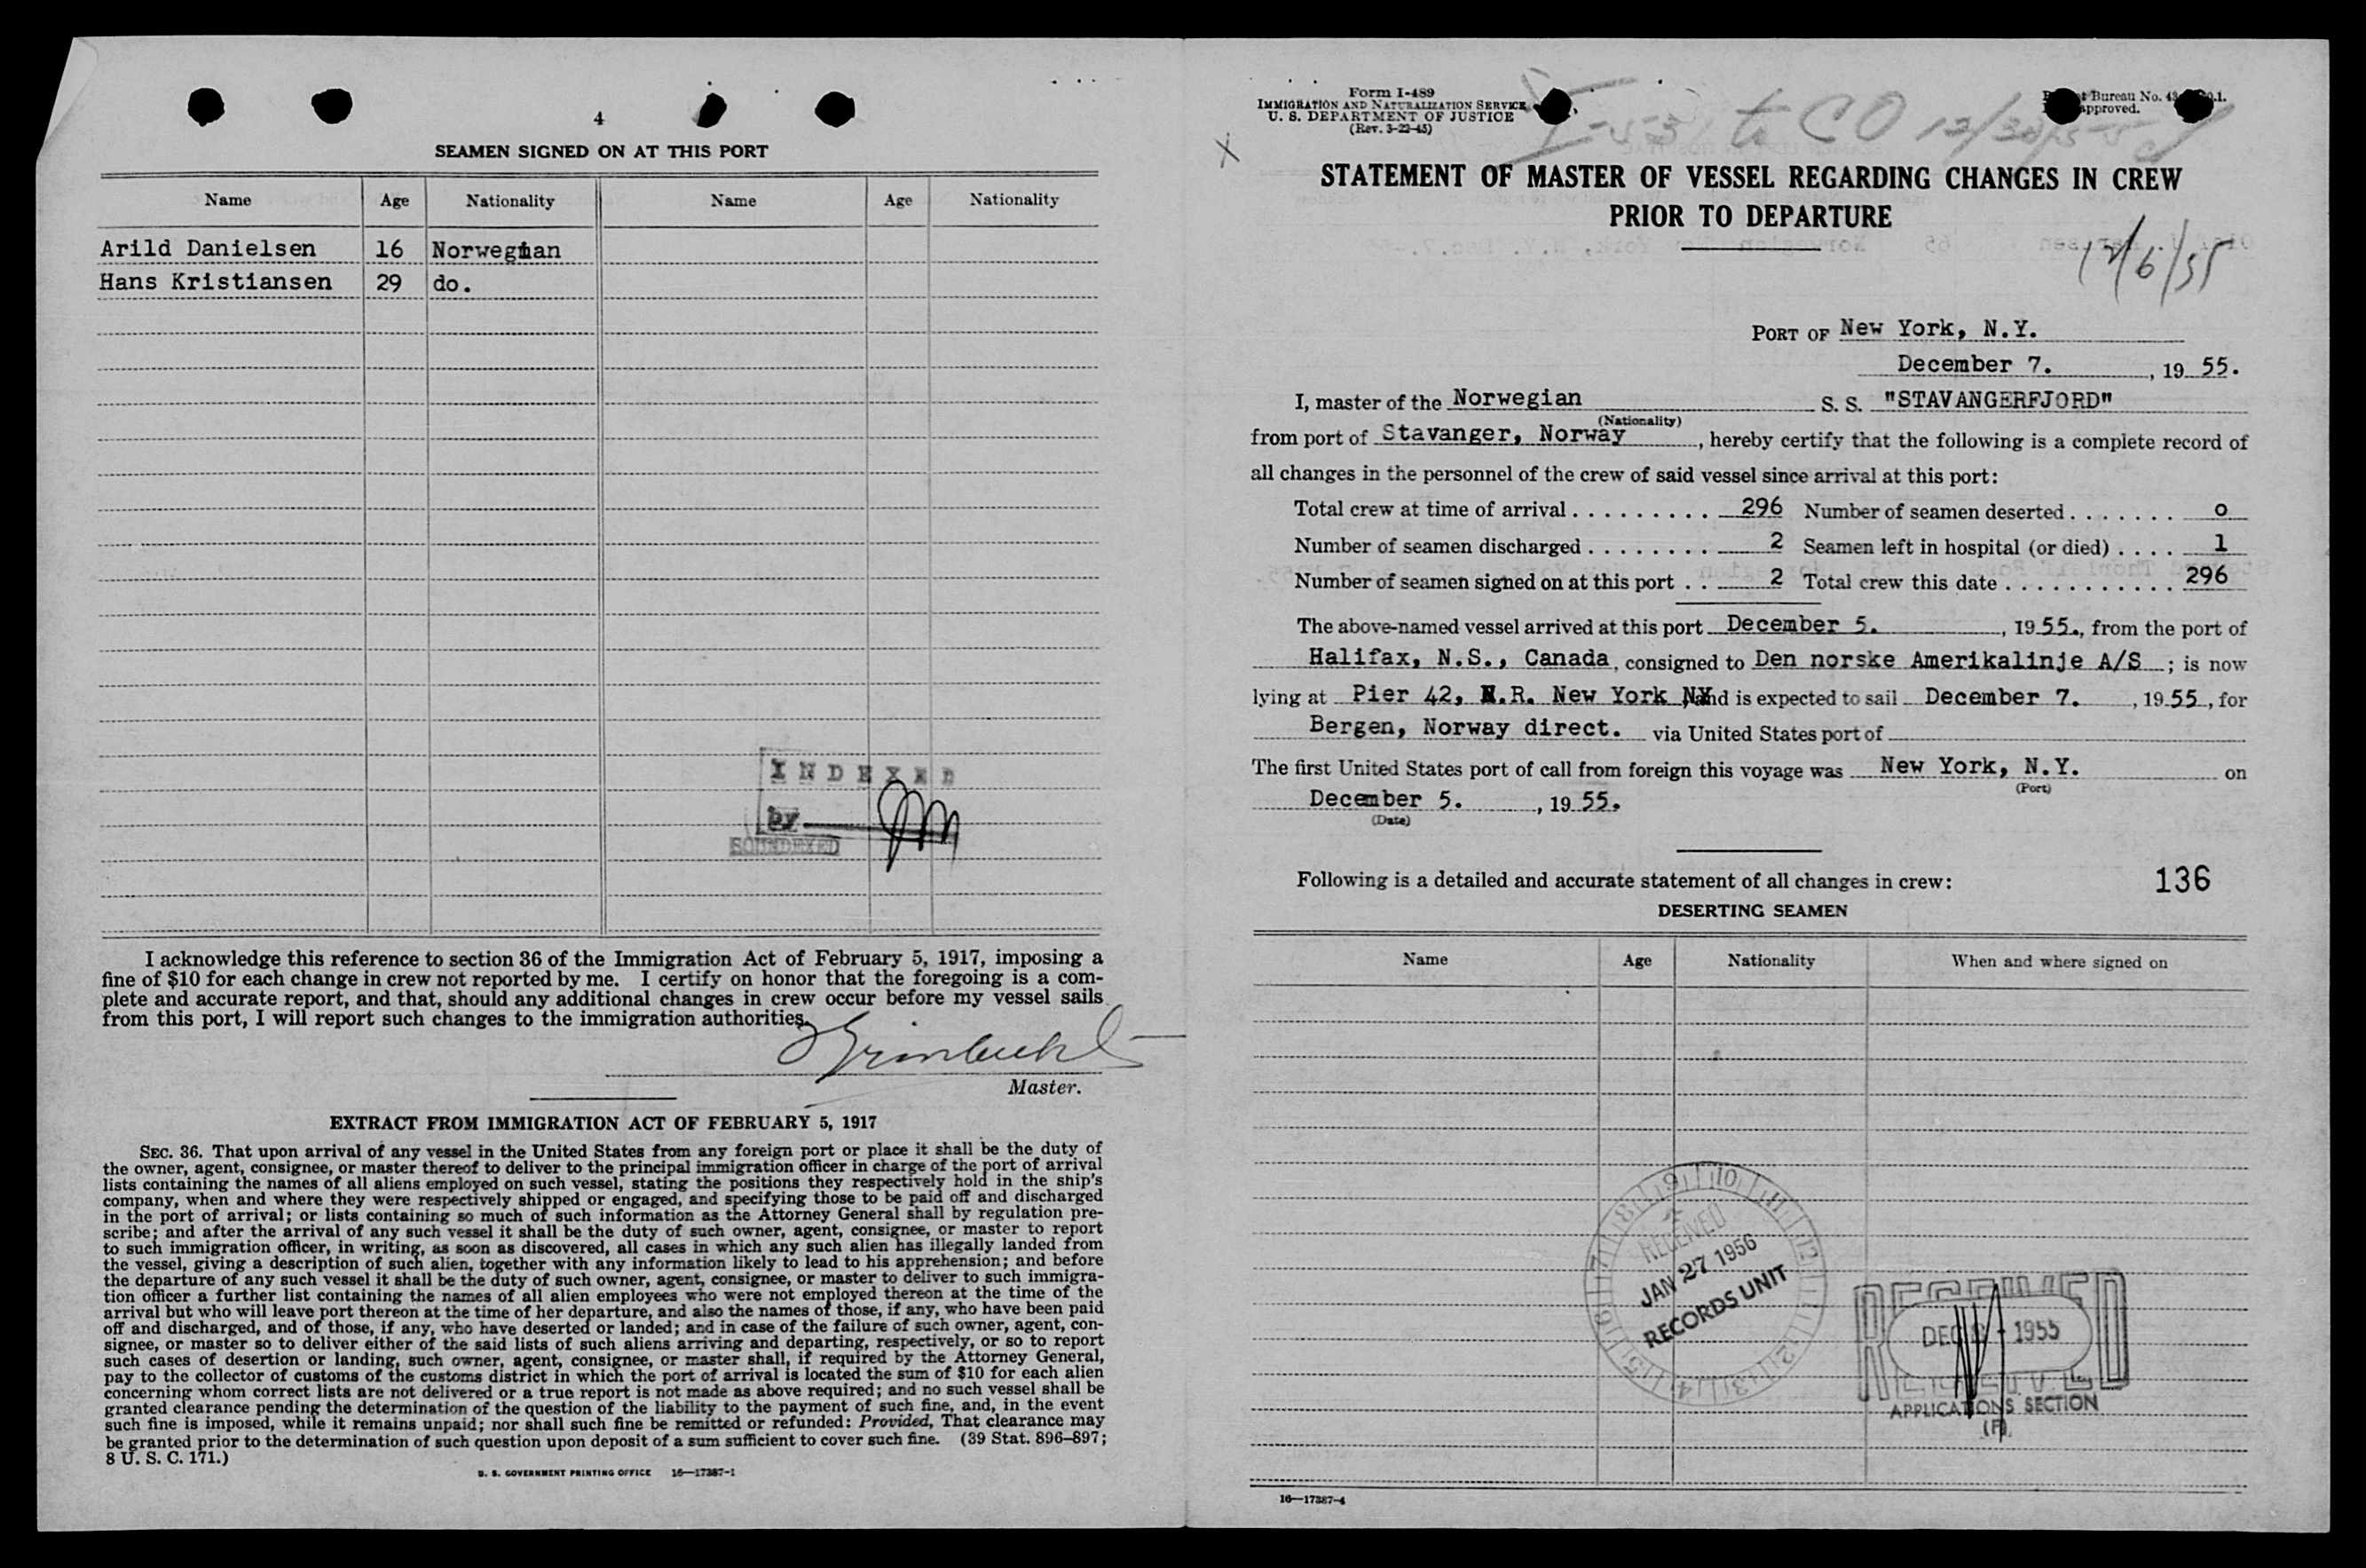 4
SEAMEN SIGNED ON AT THIS PORT
Name Age Nationality Name Age Nationality
Arild Danielsen 16 Norwegian
Hans Kristiansen 29 do.
INDEXED
by
SOUNDEXED
I acknowledge this reference to section 36 of the Immigration Act of February 5, 1917, imposing a
fine of $10 for each change in crew not reported by me. I certify on honor that the foregoing is a com-
plete and accurate report, and that, should any additional changes in crew occur before my vessel sails
from this port, I will report such changes to the immigration authorities.
Master.
EXTRACT FROM IMMIGRATION ACT OF FEBRUARY 5, 1917
SEC. 36. That upon arrival of any vessel in the United States from any foreign port or place it shall be the duty of
the owner, agent, consignee, or master thereof to deliver to the principal immigration officer in charge of the port of arrival
lists containing the names of all aliens employed on such vessel, stating the positions they respectively hold in the ship's
company, when and where they were respectively shipped or engaged, and specifying those to be paid off and discharged
in the port of arrival; or lists containing so much of such information as the Attorney General shall by regulation pre-
scribe; and after the arrival of any such vessel it shall be the duty of such owner, agent, consignee, or master to report
to such immigration officer, in writing, as soon as discovered, all cases in which any such alien has illegally landed from
the vessel, giving a description of such alien, together with any information likely to lead to his apprehension; and before
the departure of any such vessel it shall be the duty of such owner, agent, consignee, or master to deliver to such immigra-
tion officer a further list containing the names of all alien employees who were not employed thereon at the time of the
arrival but who will leave port thereon at the time of her departure, and also the names of those, if any, who have been paid
off and discharged, and of those, if any, who have deserted or landed; and in case of the failure of such owner, agent, con-
signee, or master so to deliver either of the said lists of such aliens arriving and departing, respectively, or so to report
such cases of desertion or landing, such owner, agent, consignee, or master shall, if required by the Attorney General,
pay to the collector of customs of the customs district in which the port of arrival is located the sum of $10 for each alien
concerning whom correct lists are not delivered or a true report is not made as above required; and no such vessel shall be
granted clearance pending the determination of the question of the liability to the payment of such fine, and, in the event
such fine is imposed, while it remains unpaid; nor shall such fine be remitted or refunded: Provided, That clearance may
be granted prior to the determination of such question upon deposit of a sum sufficient to cover such fine. (39 Stat. 896–897;
8 U. S. C. 171.)
U. S. GOVERNMENT PRINTING OFFICE 16—17387-1
Form I-489
IMMIGRATION AND NATURALIZATION SERVICE
U. S. DEPARTMENT OF JUSTICE
(Rev. 3-22-45)
Bureau No.
approved.
to CO 12/30/55
X
STATEMENT OF MASTER OF VESSEL REGARDING CHANGES IN CREW
PRIOR TO DEPARTURE
12/6/55
PORT OF New York, N.Y.
December 7. , 19 55.
I, master of the Norwegian S. S. "STAVANGERFJORD"
(Nationality)
from port of Stavanger, Norway, hereby certify that the following is a complete record of
all changes in the personnel of the crew of said vessel since arrival at this port:
Total crew at time of arrival . . . . . . . . . 296 Number of seamen deserted . . . . . . . 0
Number of seamen discharged . . . . . . . . 2 Seamen left in hospital (or died) . . . . 1
Number of seamen signed on at this port . . 2 Total crew this date . . . . . . . . . . . 296
The above-named vessel arrived at this port December 5. , 1955., from the port of
Halifax, N.S., Canada, consigned to Den norske Amerikalinje A/S ; is now
lying at Pier 42, N.R. New York NY, and is expected to sail December 7. , 1955 , for
Bergen, Norway direct. via United States port of
The first United States port of call from foreign this voyage was New York, N.Y. on
(Port)
December 5. , 19 55.
(Date)
Following is a detailed and accurate statement of all changes in crew: 136
DESERTING SEAMEN
Name Age Nationality When and where signed on
RECEIVED
JAN 27 1956
RECORDS UNIT
RECEIVED
DEC 1955
APPLICATIONS SECTION
(F)
16—17387-4